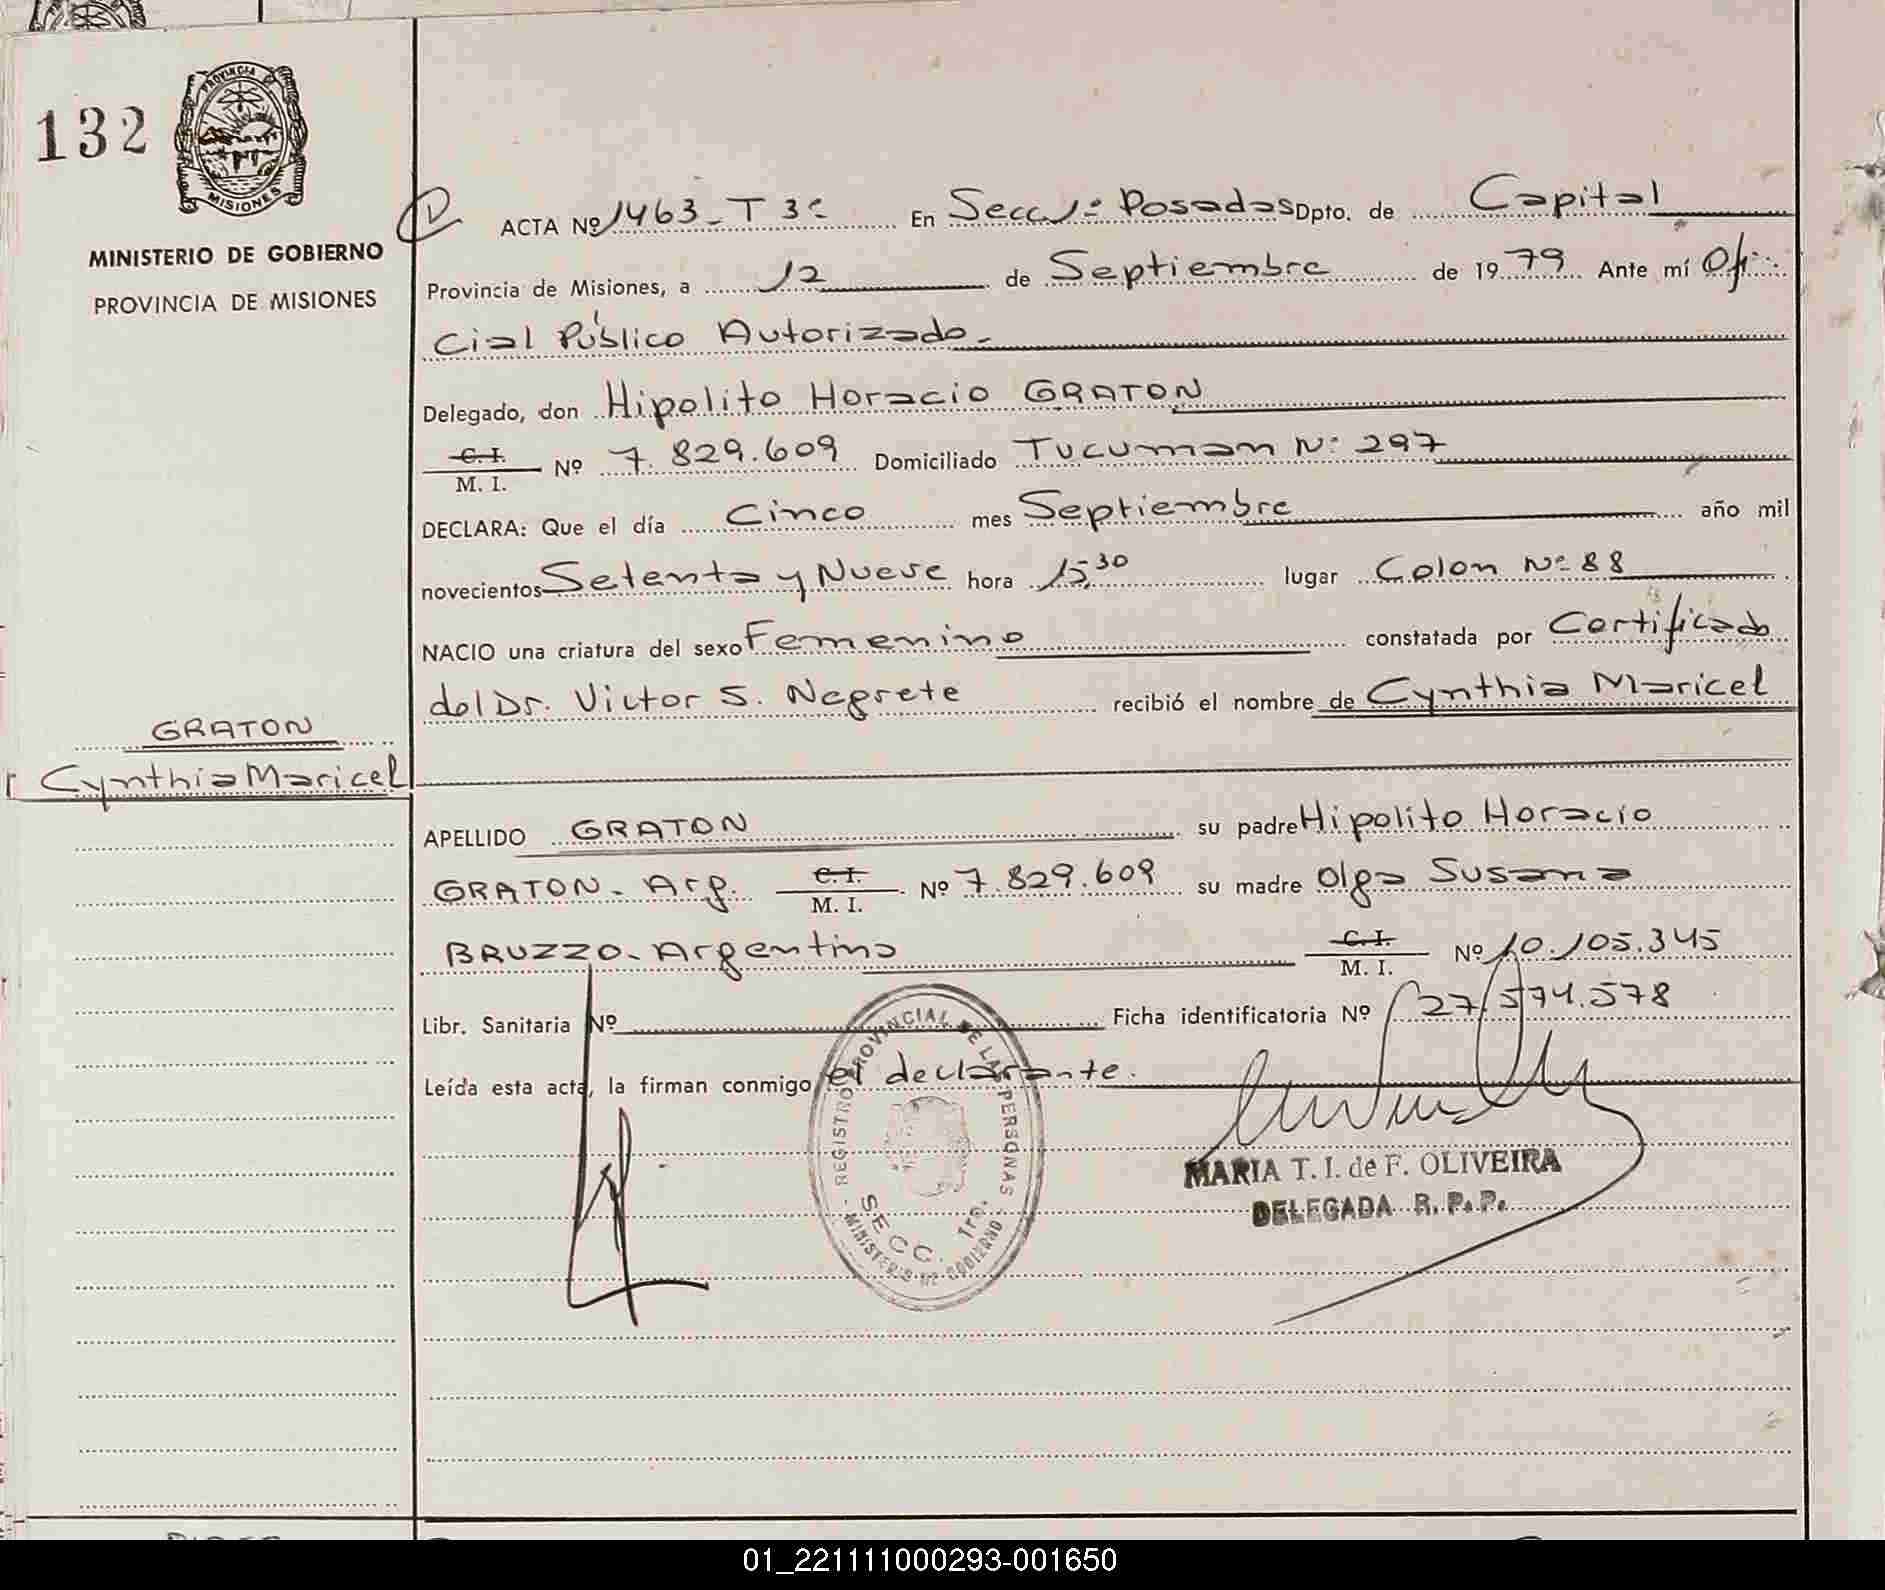 132
PROVINCIA DE
MISIONES
MINISTERIO DE GOBIERNO
PROVINCIA DE MISIONES
GRATON
Cynthia Maricel
ACTA Nº 1463 - T 3º En Secc. 1º Posadas Dpto. de Capital
Provincia de Misiones, a 12 de Septiembre de 1979 Ante mí Ofi-
cial Público Autorizado.-
Delegado, don Hipolito Horacio GRATON
C.I.
M. I. Nº 7.829.609 Domiciliado Tucuman Nº 297
DECLARA: Que el día Cinco mes Septiembre año mil
novecientos Setenta y Nueve hora 15,30 lugar Colon Nº 88
NACIO una criatura del sexo Femenino constatada por Certificado
del Dr. Victor S. Negrete recibió el nombre de Cynthia Maricel
APELLIDO GRATON su padre Hipolito Horacio
GRATON - Arg. C.I. M. I. Nº 7.829.609 su madre Olga Susana
BRUZZO - Argentina C.I. M. I. Nº 10.105.345
Libr. Sanitaria Nº Ficha identificatoria Nº 27.574.578
Leída esta acta, la firman conmigo el declarante.
REGISTRO PROVINCIAL DE LAS PERSONAS
SECC. 1ra.
MINISTERIO DE GOBIERNO
MARIA T. I. de F. OLIVEIRA
DELEGADA R. P. P.
01_221111000293-001650